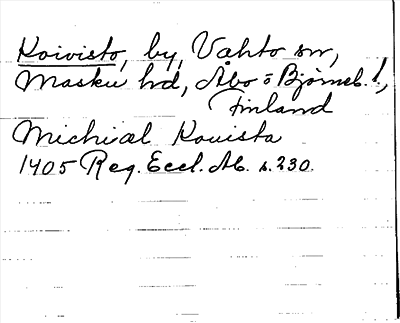 Koivisto, by, Vahto sn,
Masku hd, Åbo o Björneb. l.,
Finland
Michial Kouista
1405 Reg. Eccl. Ab. s. 230.